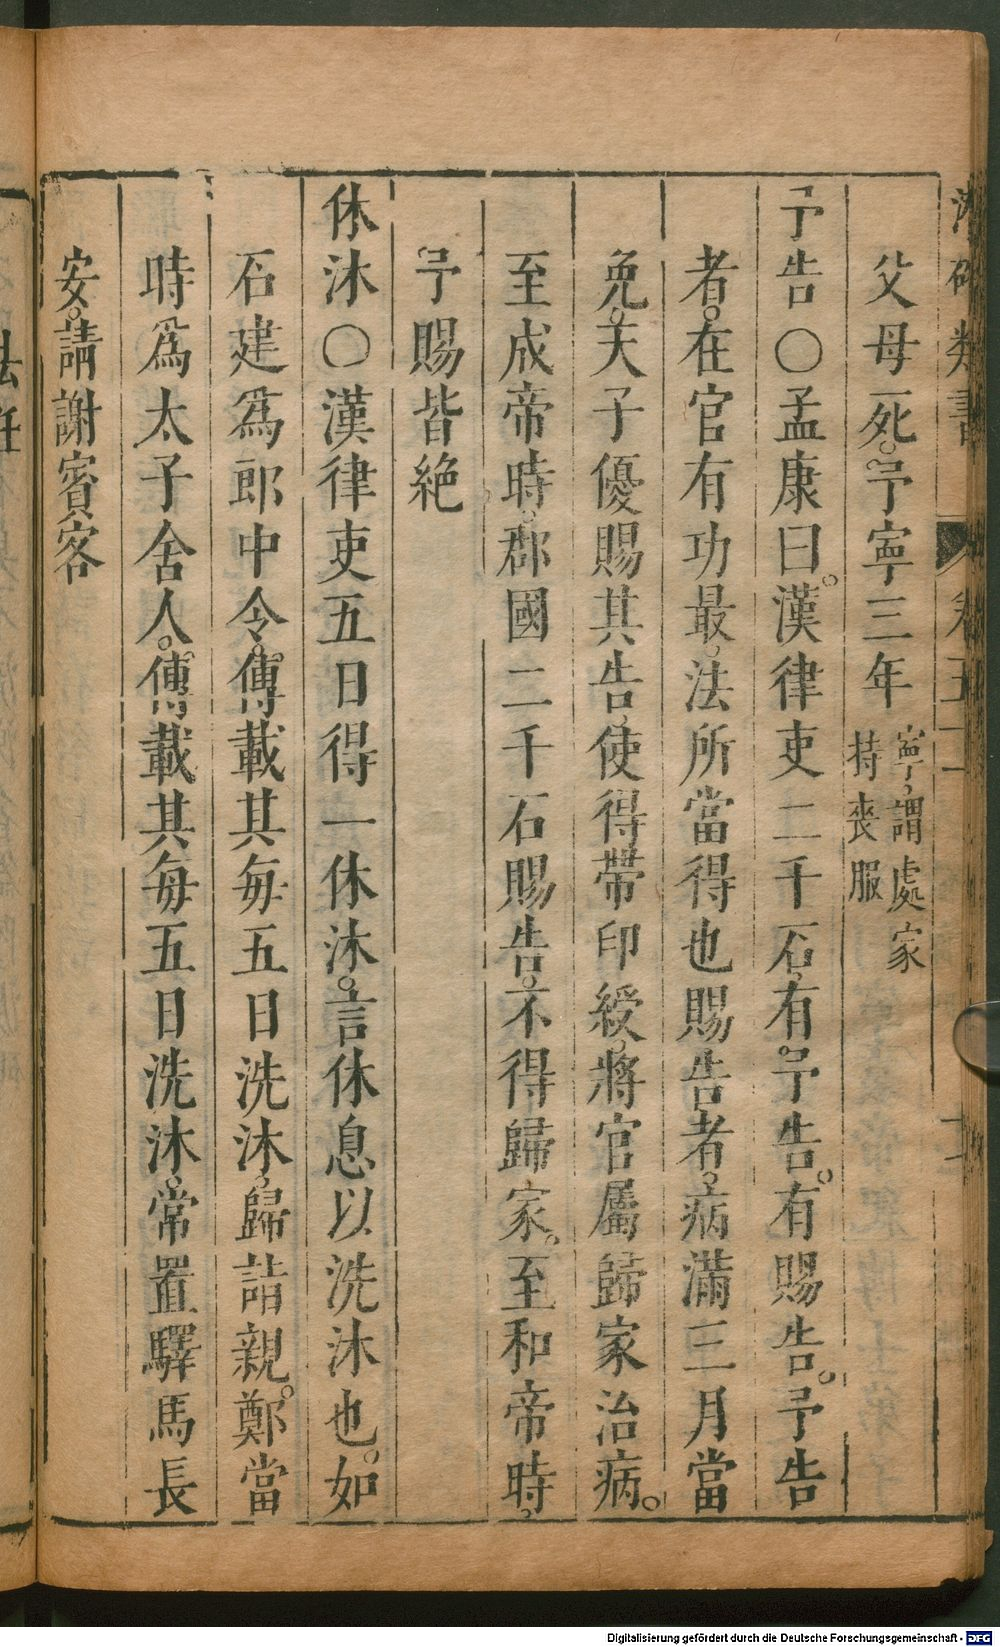 父母死。予寧三年寧，謂處家持喪服
予告○孟康曰。漢律吏二千石，有予告。有賜告。予告
者。在官有功最，法所當得也賜告者。病滿三月當
免。天子優賜其告，使得帶印綬，將官屬歸家治病。
至成帝時，郡國二千石賜告。不得歸家。至和帝時，
予賜皆絶
休沐○漢律吏五日得一休沐。言休息以洗沐也。如
石建爲郎中令。傳載其每五日洗沐，歸請親。鄭當
時爲太子舍人。傳載其每五日洗沐。常置驛馬長
安。請謝賓客
類書
Digitalisierung gefördert durch die Deutsche Forschungsgemeinschaft - DFG